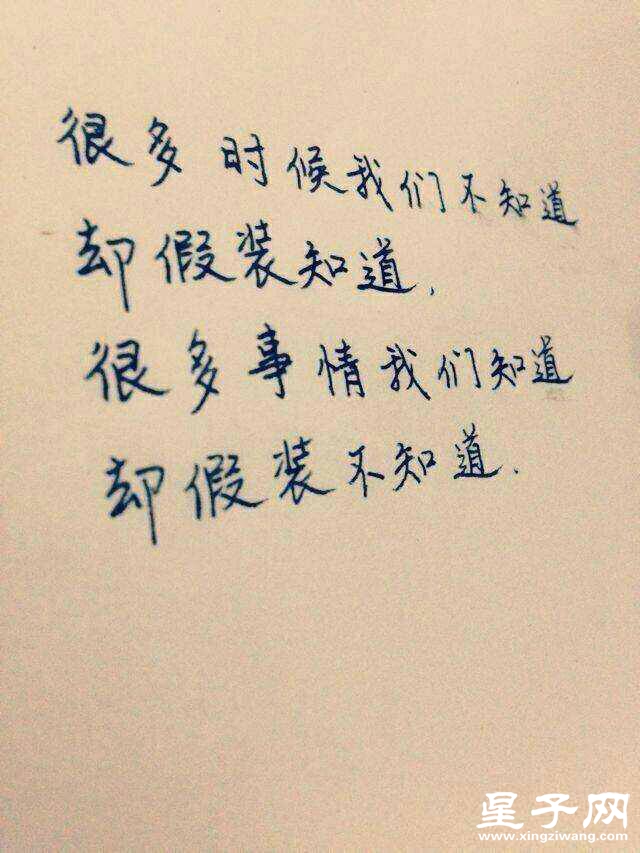 很多时候我们不知道
却假装知道.
很多事情我们知道
却假装不知道.
星子网
www.xingziwang.com